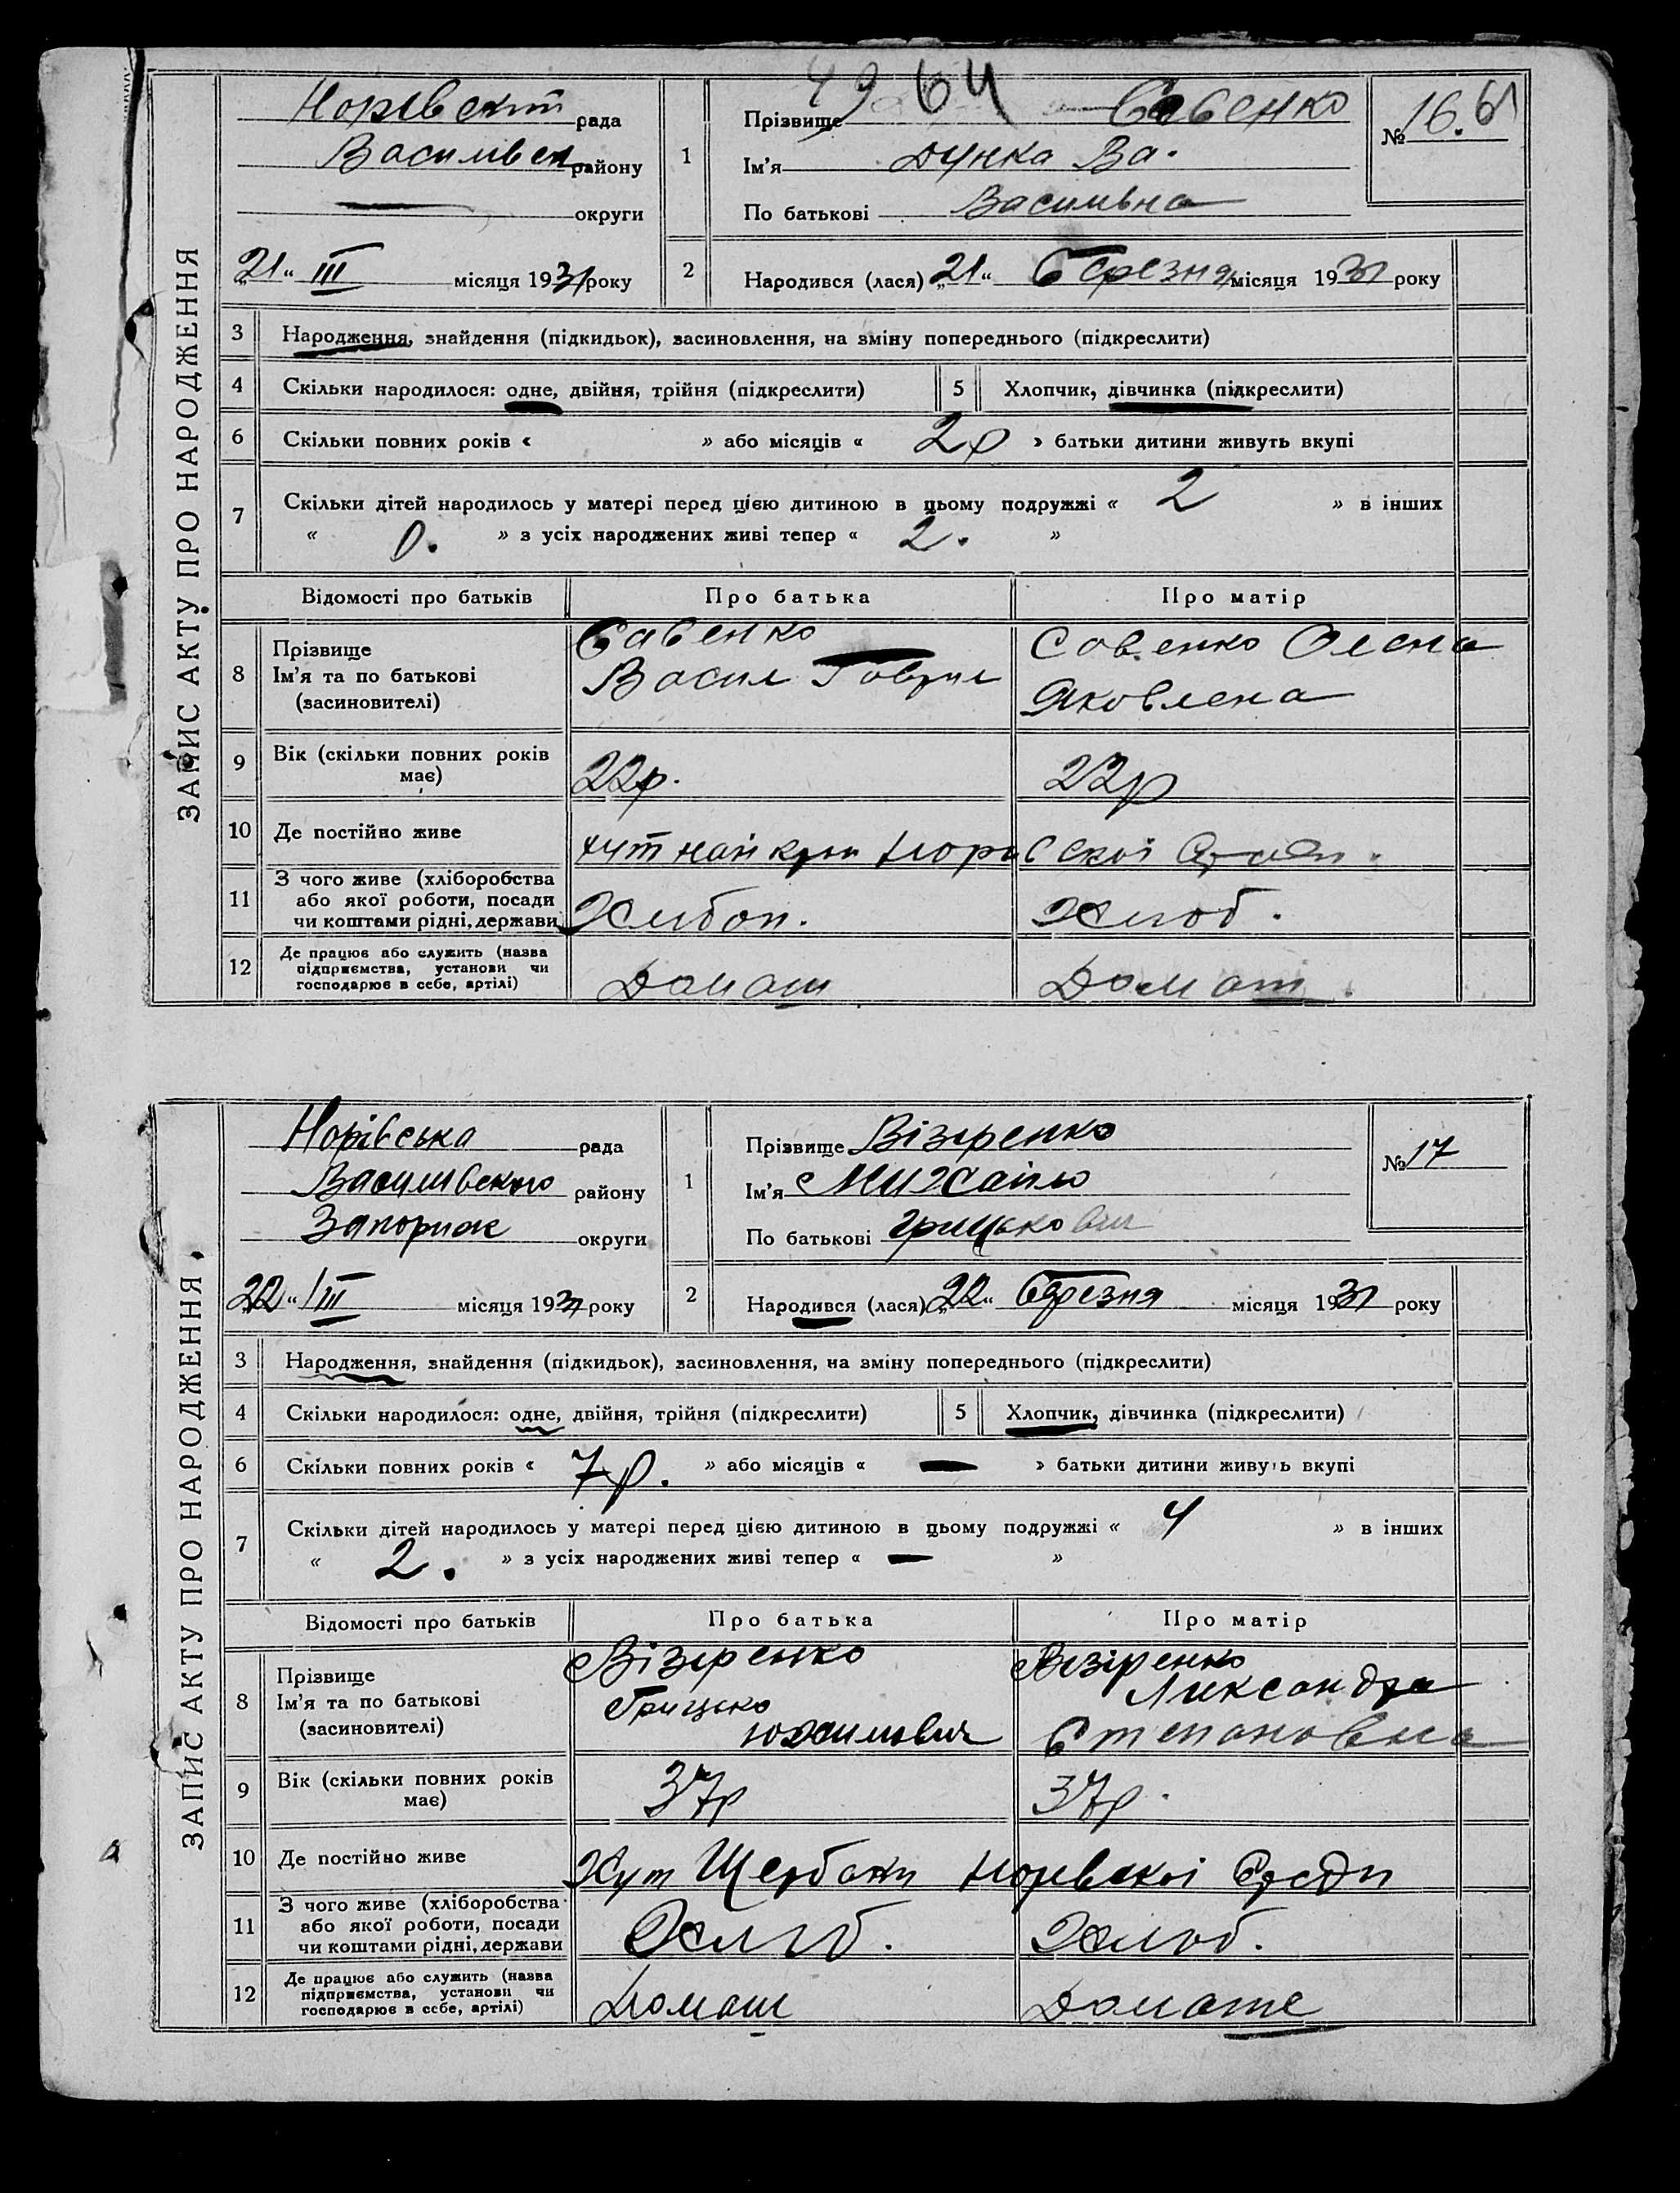 49 64
ЗАПИС АКТУ ПРО НАРОДЖЕННЯ
рада
району
округи
„21“ III місяця 1931 року
1
Прізвище Савенко
Ім’я Дунка Ва.
По батькові Васильвна
№ 16.
2
Народився (лася) „21“ березня місяця 1931 року
3 Народження, знайдення (підкидьок), засиновлення, на зміну попереднього (підкреслити)
4 Скільки народилося: одне, двійня, трійня (підкреслити) 5 Хлопчик, дівчинка (підкреслити)
6 Скільки повних років « » або місяців « 2р » батьки дитини живуть вкупі
7 Скільки дітей народилось у матері перед цією дитиною в цьому подружжі « 2 » в інших
« 0. » з усіх народжених живі тепер « 2. »
Відомості про батьків Про батька Про матір
8 Прізвище
Ім’я та по батькові
(засиновителі)
Савенко
Васил Гаврил
Савенко Олена
Яковлена
9 Вік (скільки повних років
має)
22р. 22р
10 Де постійно живе
11 З чого живе (хліборобства
або якої роботи, посади
чи коштами рідні, держави
12 Де працює або служить (назва
підприємства, установи чи
господарює в себе, артілі)
Домаш Домаш.
ЗАПИС АКТУ ПРО НАРОДЖЕННЯ
Норівська рада
Василивского району
Запориж округи
„22“ III місяця 1931 року
1
Прізвище Візіренко
Ім’я Михайло
По батькові Грицькович
№ 17
2
Народився (лася) „22“ березня місяця 1931 року
3 Народження, знайдення (підкидьок), засиновлення, на зміну попереднього (підкреслити)
4 Скільки народилося: одне, двійня, трійня (підкреслити) 5 Хлопчик, дівчинка (підкреслити)
6 Скільки повних років « 7р. » або місяців « — » батьки дитини живуть вкупі
7 Скільки дітей народилось у матері перед цією дитиною в цьому подружжі « 4 » в інших
« 2. » з усіх народжених живі тепер « — »
Відомості про батьків Про батька Про матір
8 Прізвище
Ім’я та по батькові
(засиновителі)
Візіренко
Грицько
Візіренко
Александра
Степановна
9 Вік (скільки повних років
має)
37р 37р.
10 Де постійно живе
Хут Щербаки Норевскої Сради
11 З чого живе (хліборобства
або якої роботи, посади
чи коштами рідні, держави
Хліб. Хліб.
12 Де працює або служить (назва
підприємства, установи чи
господарює в себе, артілі)
Домаш Домаше